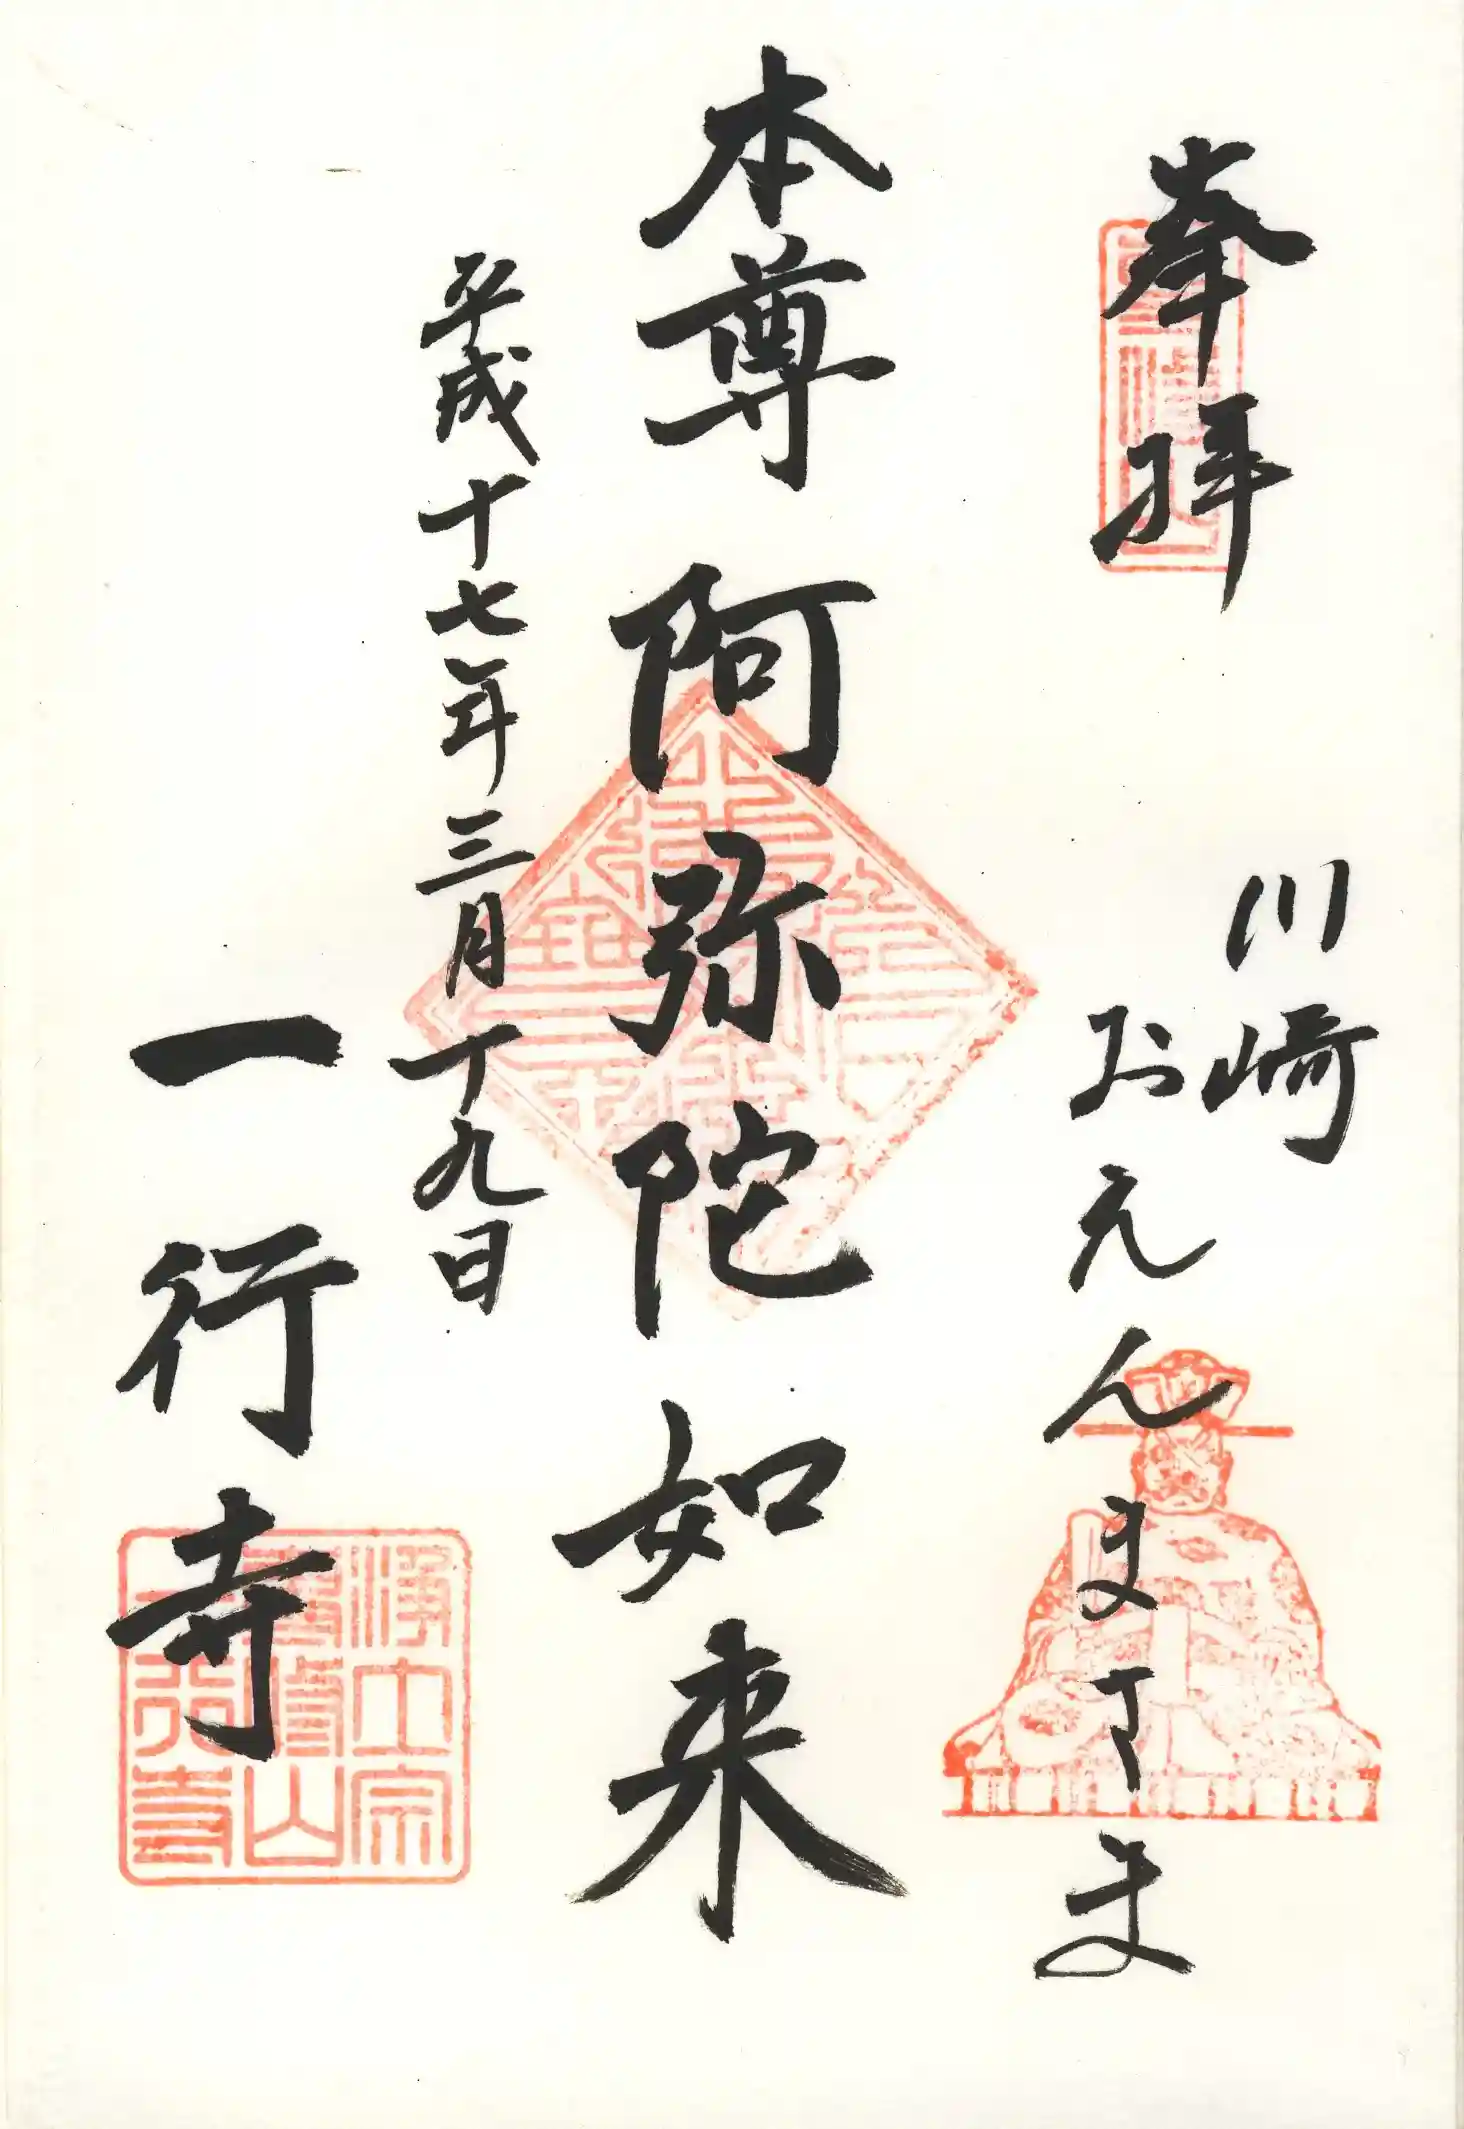 奉拝
専修山
川崎
おえんまさま
本尊 阿弥陀如来
平成十七年三月十九日
一行寺
浄土宗
専修山
一行寺